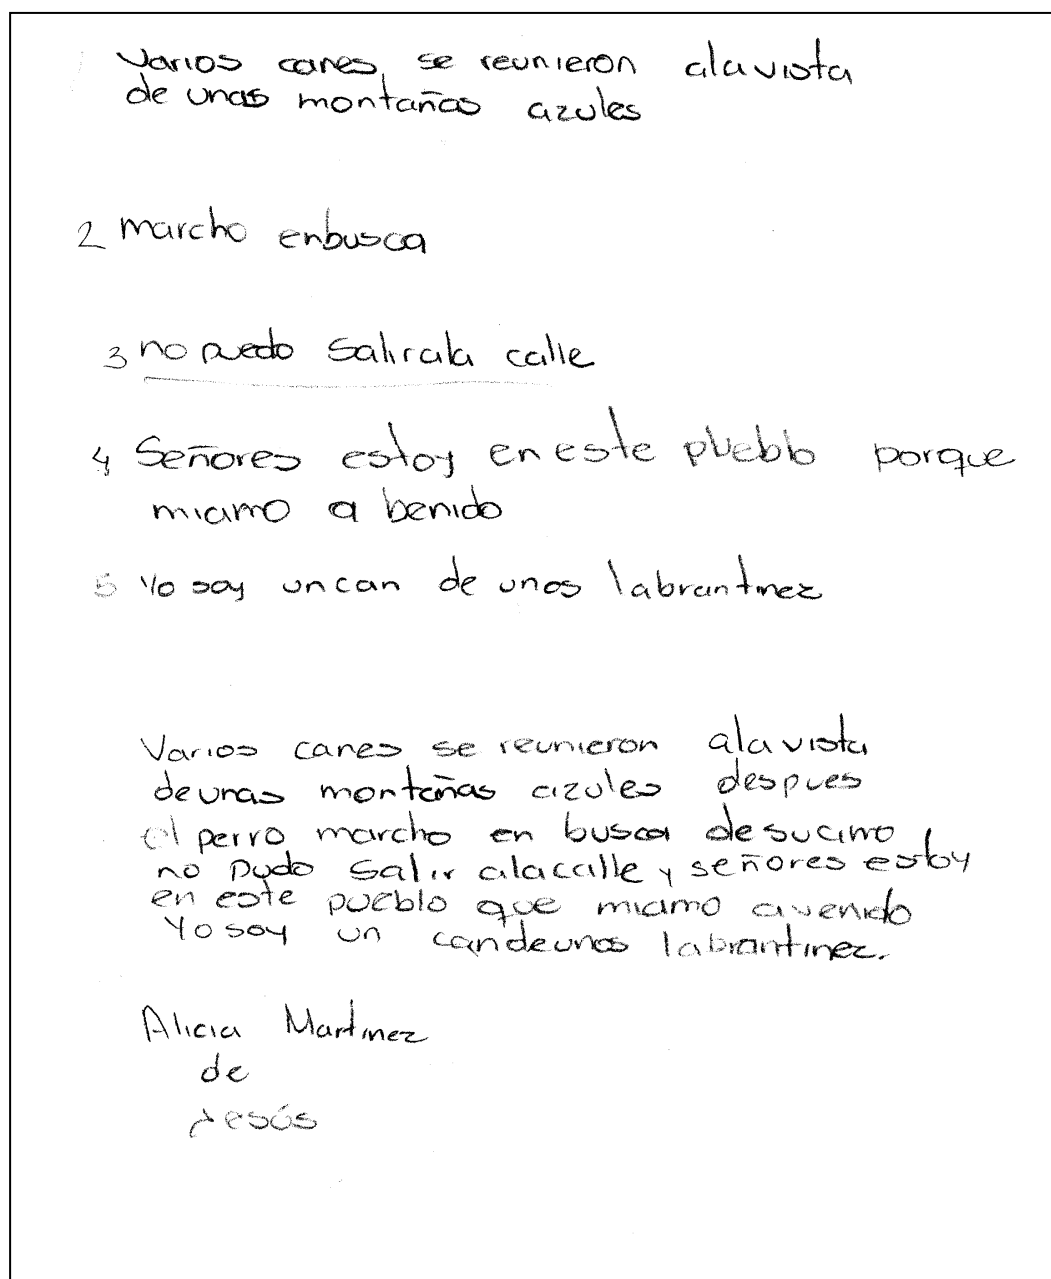 1 Varios canes se reunieron alavista
de unas montañas azules
2 marcho enbusca
3 no puedo salirala calle
4 Señores estoy en este pueblo porque
miamo a benido
5 Yo soy uncan de unos labrantinez
Varios canes se reunieron alavista
deunas montañas azules despues
el perro marcho en busca desuamo
no pudo salir alacalle y señores estoy
en este pueblo que miamo avenido
Yo soy un candeunos labrantinez.
Alicia Martinez
de
Jesús